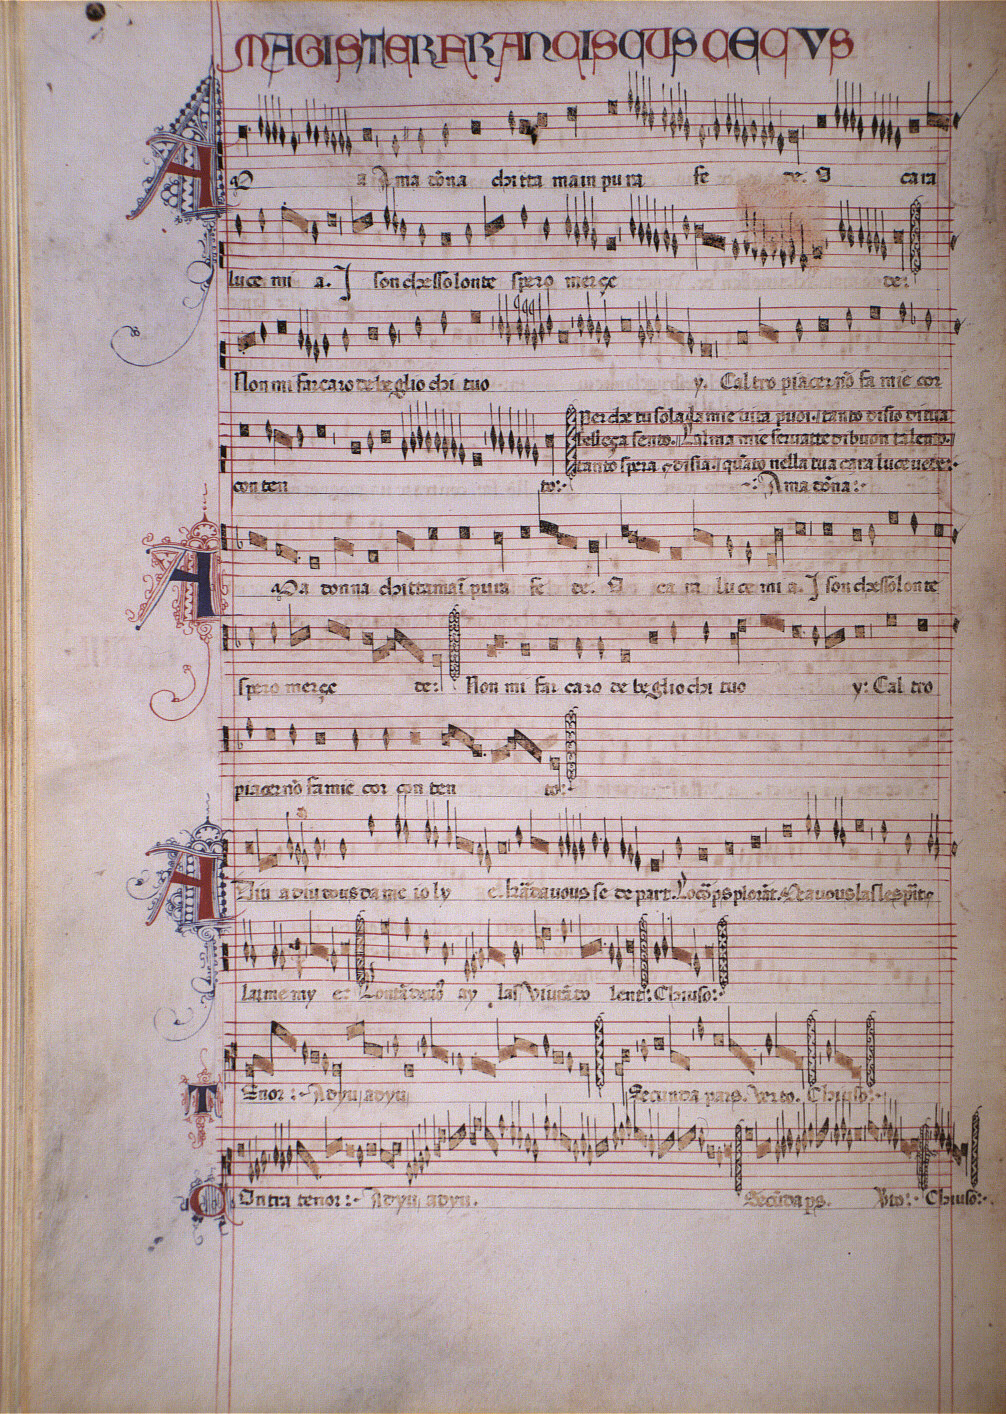 MAGISTER FRANCISCUS CECVS
A Ma a Ama dõna chi tta main pu ra fe de. O cara
luce mi a. I son chesso lonte spero merçe de:
Non mi far caro de be glio chi tuo y. Cal tro piacer nõ fa mie cor
con ten to:
Per che tu sola da mie vita puoi. tanto disio di tua
belleça sento. Lalma mie
tanto spera e disia. quãto nella tua cara luce vede:
Ama dõna:
A Ma donna chi ttamaĩ pura fe de. O ca ra lu ce mi a. I son chesso lon te
spero merçe de: Non mi far caro de be glio chi tuo y: Cal tro
piacer nõ fa mie cor con ten to:
A Diu a diu dous dame io ly e. kãda vous se de part. Lo cõps plorãt.
larme my e: Lontã de ay las Vivrã do lent: Chiuso:
TEnor: Adyu, adyu Secunda pars. Verto. Chiuso:
COntra tenor: Adyu, adyu. Secũda ps. Chiuso: